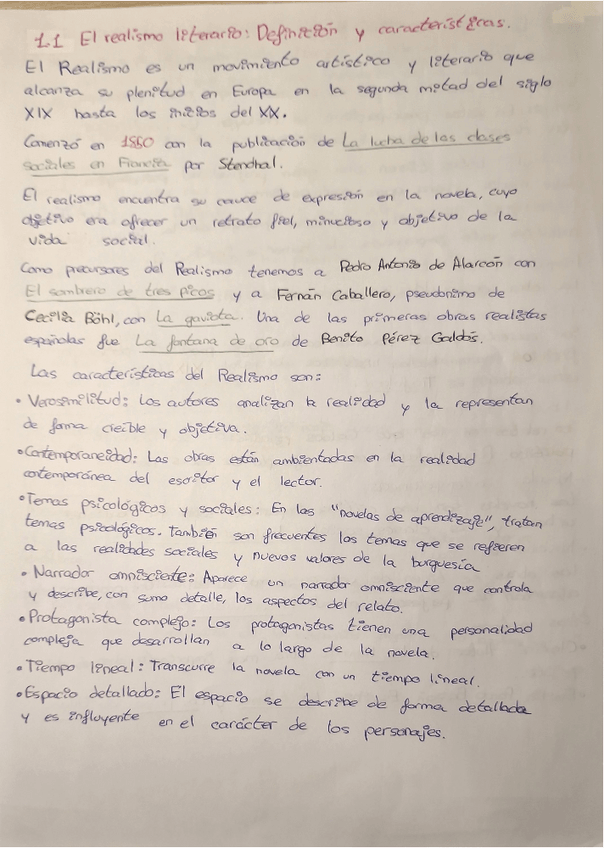 1.1 El realismo literario: Definición y características.
El Realismo es un movimiento artístico y literario que
alcanza su plenitud en Europa en la segunda mitad del siglo
XIX hasta los inicios del XX.
Comenzó en 1850 con la publicación de La lucha de las clases
sociales en Francia por Stendhal.
El realismo encuentra su cauce de expresión en la novela, cuyo
objetivo era ofrecer un retrato fiel, minucioso y objetivo de la
vida social.
Como precursores del Realismo tenemos a Pedro Antonio de Alarcón con
El sombrero de tres picos y a Fernán Caballero, pseudonimo de
Cecilia Böhl, con La gaviota. Una de las primeras obras realistas
españolas fue La fontana de oro de Benito Pérez Galdós.
Las características del Realismo son:
• Verosimilitud: Los autores analizan la realidad y la representan
de forma creíble y objetiva.
• Contemporaneidad: Las obras están ambientadas en la realidad
contemporánea del escritor y el lector.
• Temas psicológicos y sociales: En las "novelas de aprendizaje", tratan
temas psicológicos. También son frecuentes los temas que se refieren
a las realidades sociales y nuevos valores de la burguesía
• Narrador omnisciente: Aparece un narrador omnisciente que controla
y describe, con sumo detalle, los aspectos del relato.
• Protagonista complejo: Los protagonistas tienen una personalidad
compleja que desarrollan a lo largo de la novela.
• Tiempo lineal: Transcurre la novela con un tiempo lineal.
• Espacio detallado: El espacio se describe de forma detallada
y es influyente en el carácter de los personajes.